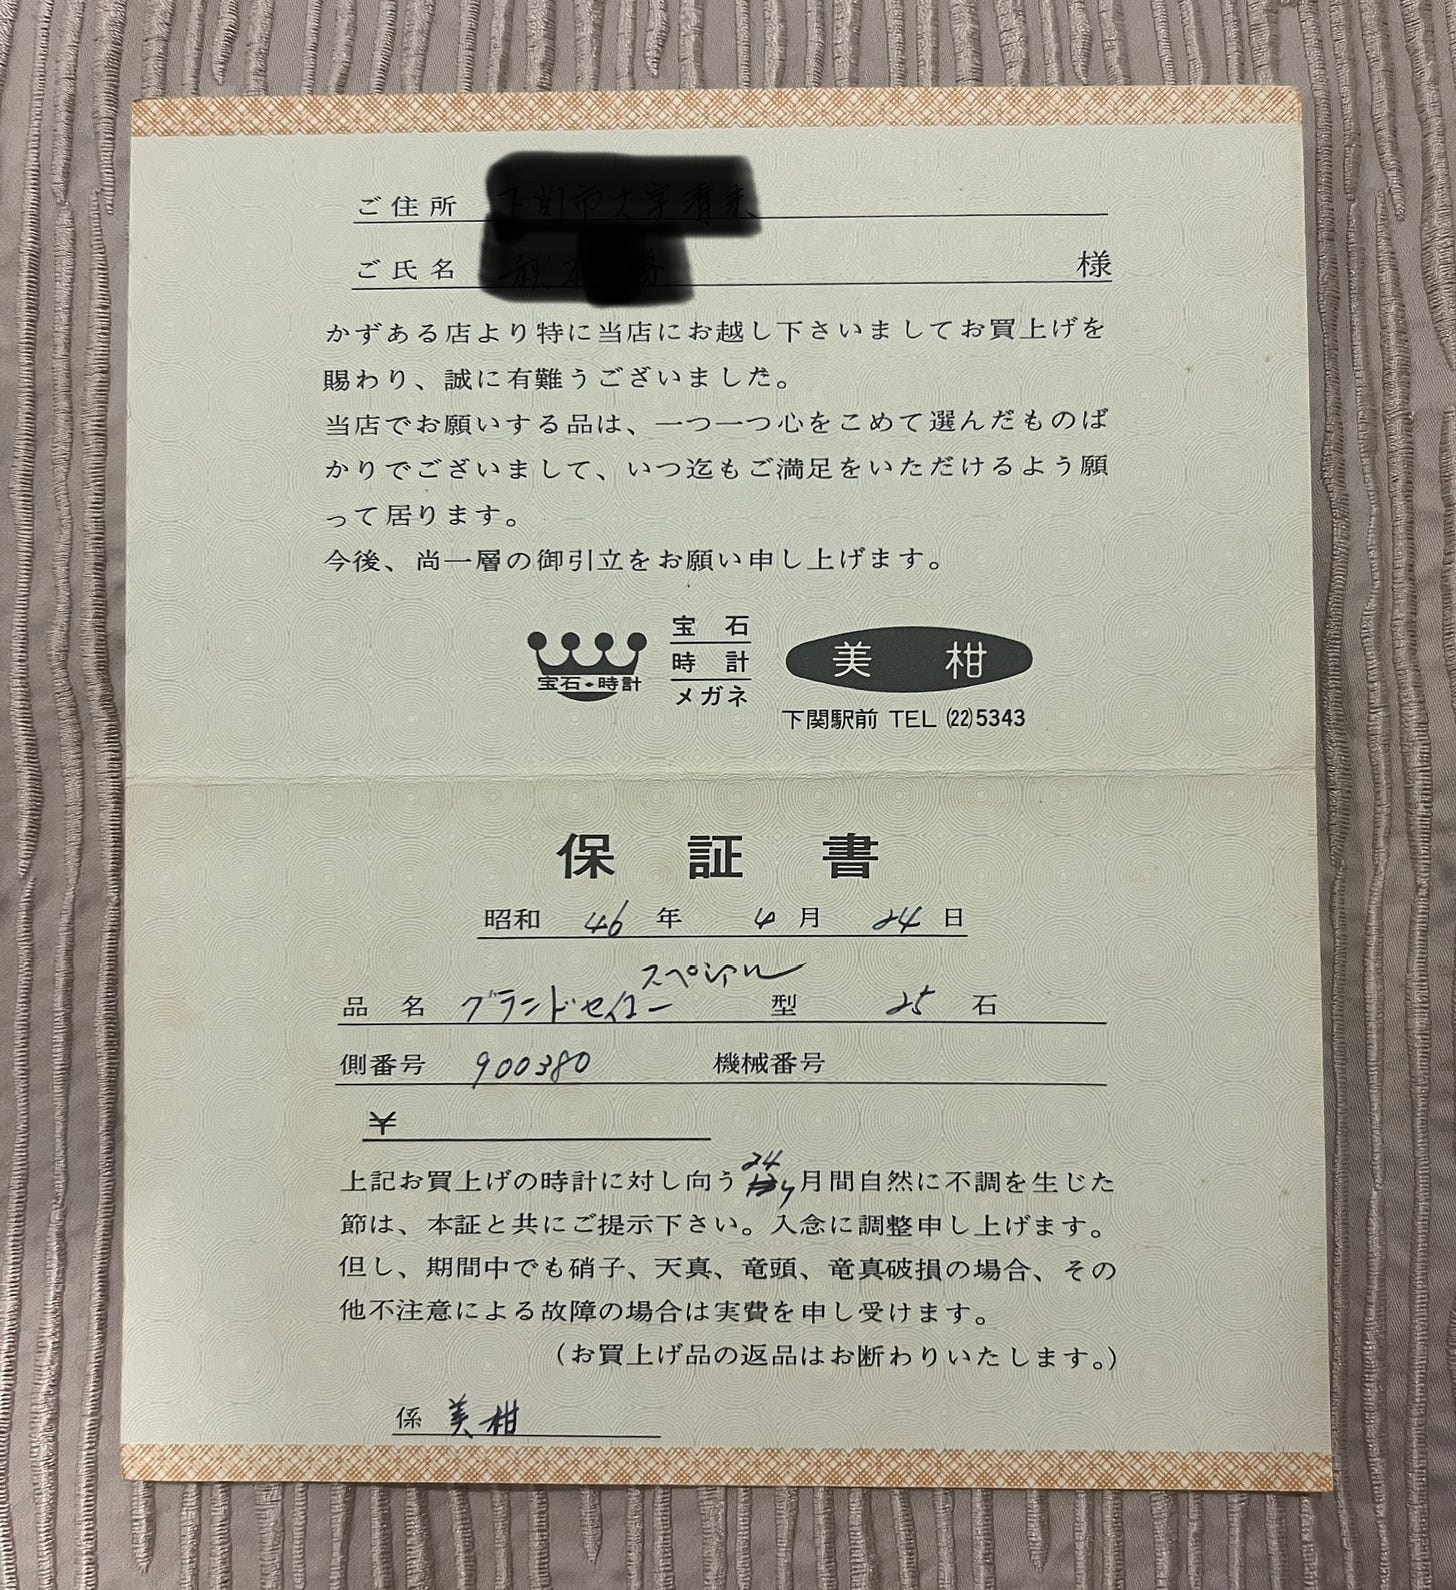 ご住所
ご氏名 様
かずある店より特に当店にお越し下さいましてお買上げを
賜わり、誠に有難うございました。
当店でお願いする品は、一つ一つ心をこめて選んだものば
かりでございまして、いつ迄もご満足をいただけるよう願
って居ります。
今後、尚一層の御引立をお願い申し上げます。
宝石・時計
宝石
時計
メガネ
美柑
下関駅前 TEL (22)5343
保証書
昭和 46 年 4 月 24 日
スペシャル
品名 グランドセイコー 型 25 石
側番号 900380 機械番号
¥
24
上記お買上げの時計に対し向う ヶ月間自然に不調を生じた
節は、本証と共にご提示下さい。入念に調整申し上げます。
但し、期間中でも硝子、天真、竜頭、竜真破損の場合、その
他不注意による故障の場合は実費を申し受けます。
(お買上げ品の返品はお断わりいたします。)
係 美柑